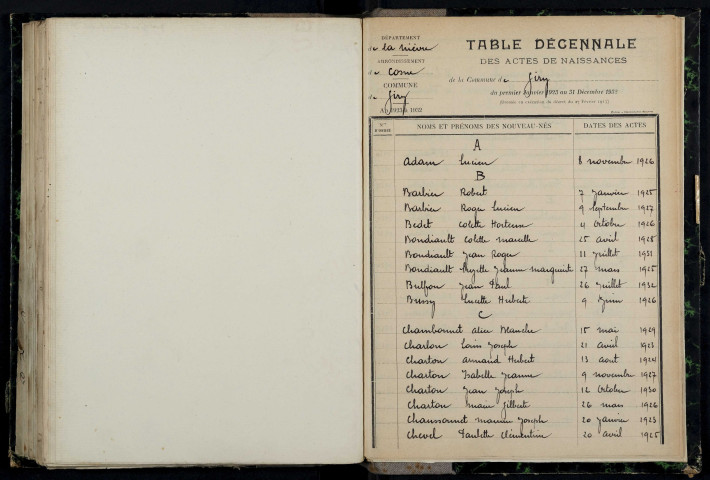 DÉPARTEMENT
de la Nièvre
ARRONDISSEMENT
de Cosne
COMMUNE
de Giry
An 1923 à 1932
TABLE DÉCENNALE
DES ACTES DE NAISSANCES
de la Commune de Giry
du premier Janvier 1923 au 31 Décembre 1932
NOMS ET PRÉNOMS DES NOUVEAU-NÉS DATES DES ACTES
A
Adam Lucien 8 novembre 1926
B
Barbier Robert 7 Janvier 1925
Barbier Roger Lucien 9 Septembre 1927
Bedet Colette Hortense 4 Octobre 1926
Bondiault Colette Marcelle 25 avril 1928
Bondiault Jean Roger 21 Juillet 1931
Bondiault Jeanne Marguerite 27 mars 1925
Buffon Jean Paul 26 Juillet 1932
Bussy Lucette Huberte 9 Juin 1926
C
Chambonnet Alice Blanche 15 mai 1929
Charton Louis Joseph 21 avril 1923
Charton Armand Hubert 13 aout 1924
Charton Isabelle Jeanne 9 novembre 1927
Charton Jean Joseph 12 Octobre 1930
Charton Gilbert 26 mars 1926
Chaussonnet Maurice Joseph 20 Janvier 1923
Chevel Paulette Clémentine 20 avril 1925